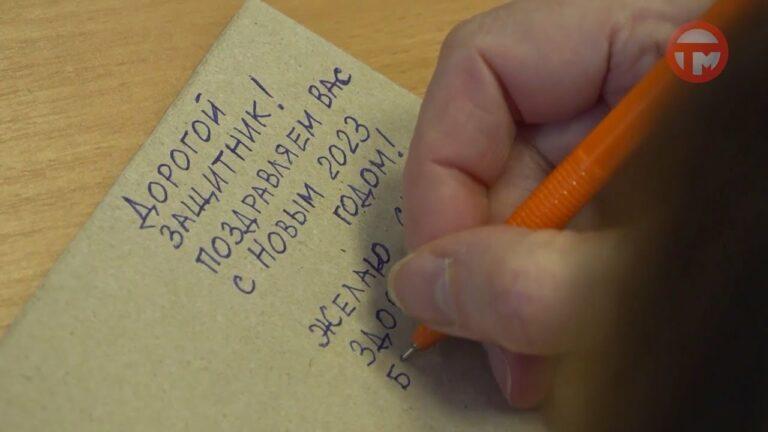 ДОРОГОЙ
ЗАЩИТНИК!
ПОЗДРАВЛЯЕМ ВАС
С НОВЫМ 2023
ГОДОМ!
ЖЕЛАЮ
ТМ